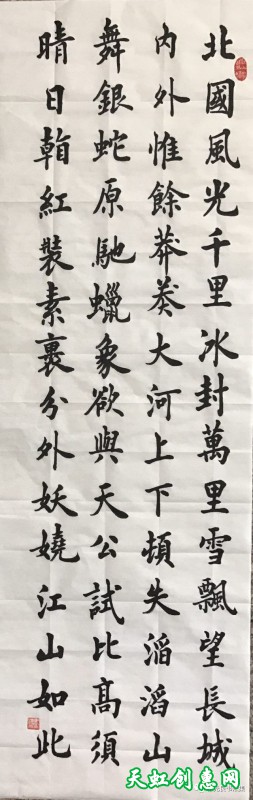 北國風光千里冰封萬里雪飄望長城
内外惟餘莽莽大河上下頓失滔滔山
舞銀蛇原馳蠟象欲與天公試比高須
晴日看紅裝素裹分外妖嬈江山如此
天虹创意网